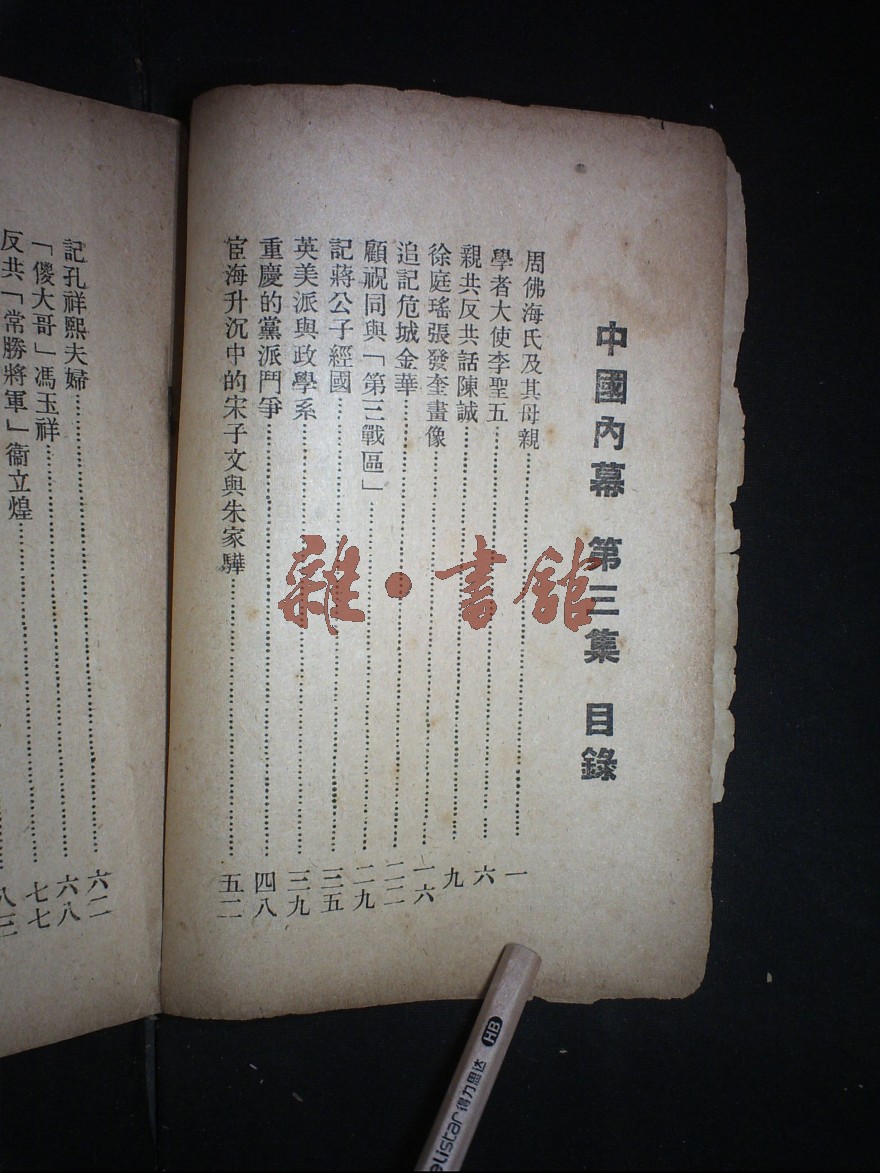 中國內幕 第三集 目錄
周佛海氏及其母親……一
學者大使李聖五……六
親共反共話陳誠……九
徐庭瑤張發奎畫像……一六
追記危城金華……二二
顧祝同與「第三戰區」……二九
記蔣公子經國……三五
英美派與政學系……三九
重慶的黨派鬥爭……四八
宦海升沉中的宋子文與朱家驊……五二
六二
記孔祥熙夫婦……六八
「傻大哥」馮玉祥……七七
反共「常勝將軍」衛立煌……八三
雜·書館
elistar 得力思达 HB